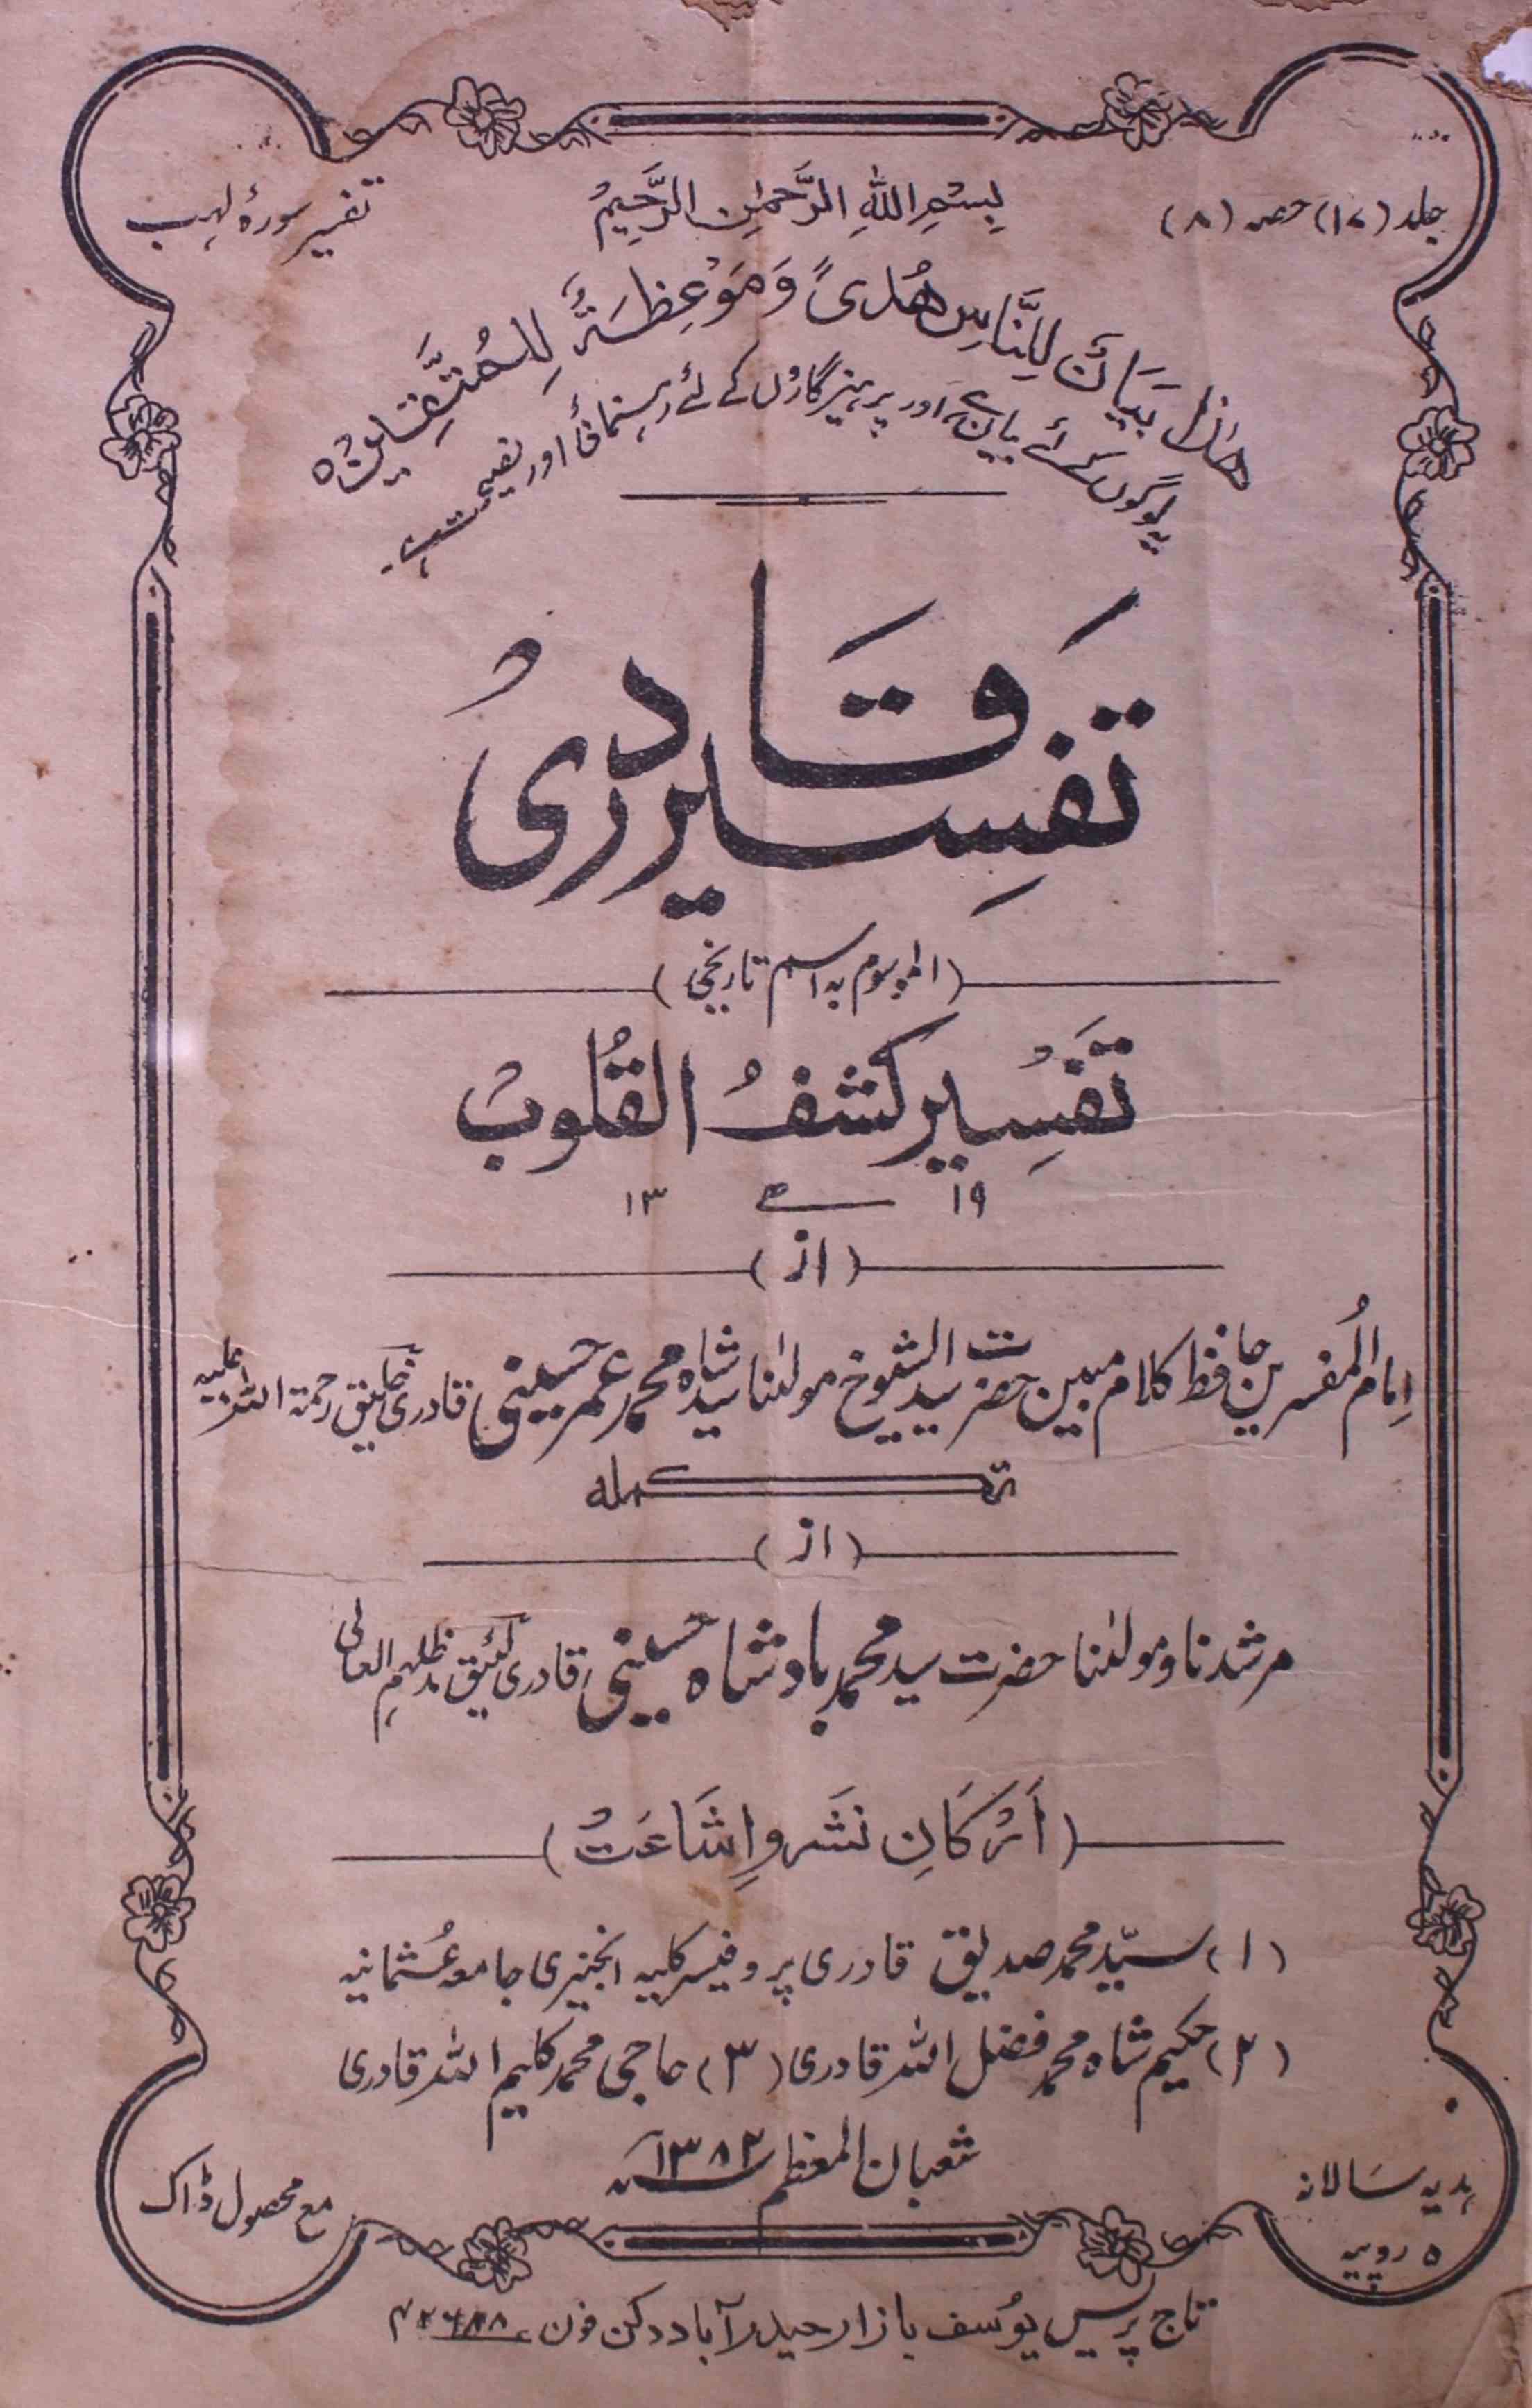 جلد (۱۷) حصہ (۸)
بِسْمِ اللهِ الرَّحْمٰنِ الرَّحِيْمُ
تفسیر سورۂ لہب
هٰذَا بَيَانٌ لِلنَّاسِ هُدىً وَمَوْعِظَةٌ لِلمُتَّقِيْنَ ہ
یہ لوگوں کے لئے بیان ہے اور پرہیزگاروں کے لئے رہنمائی اور نصیحت ہے۔
تَفسِیر قَادِریْ
(الموسوم بہ اسم تاریخی)
تَفْسِیر کَشفُ القُلُوبْ
۱۹ ھ ۱۳
(از)
اِمام المُفسرین حافظ کلام مبین حضرت سید الشیوخ مولٰنا سید شاہ محمد عمر حسینی قادری خلیق رحمۃ اللہ علیہ
تکملہ
(از)
مرشدنا و مولٰنا حضرت سید محمد بادشاہ حسینی قادری لئیق مدظلہم العالی
(اَرْکَانِ نَشَر و اِشَاعَتْ)
(۱) سیّد محمد صدیق قادری پروفیسر کلیہ انجنیری جامعہ عُثمانیہ
(۲) حکیم شاہ محمد فضل اللہ قادری (۳) حاجی محمد کلیم اللہ قادری
شعبان المعظم ۱۳۸۲ھ
ہدیہ سَالانہ
۵ روپیہ
مع محصول ڈاک
تاج پریس یوُسف بازار حیدرآباد دکن فون